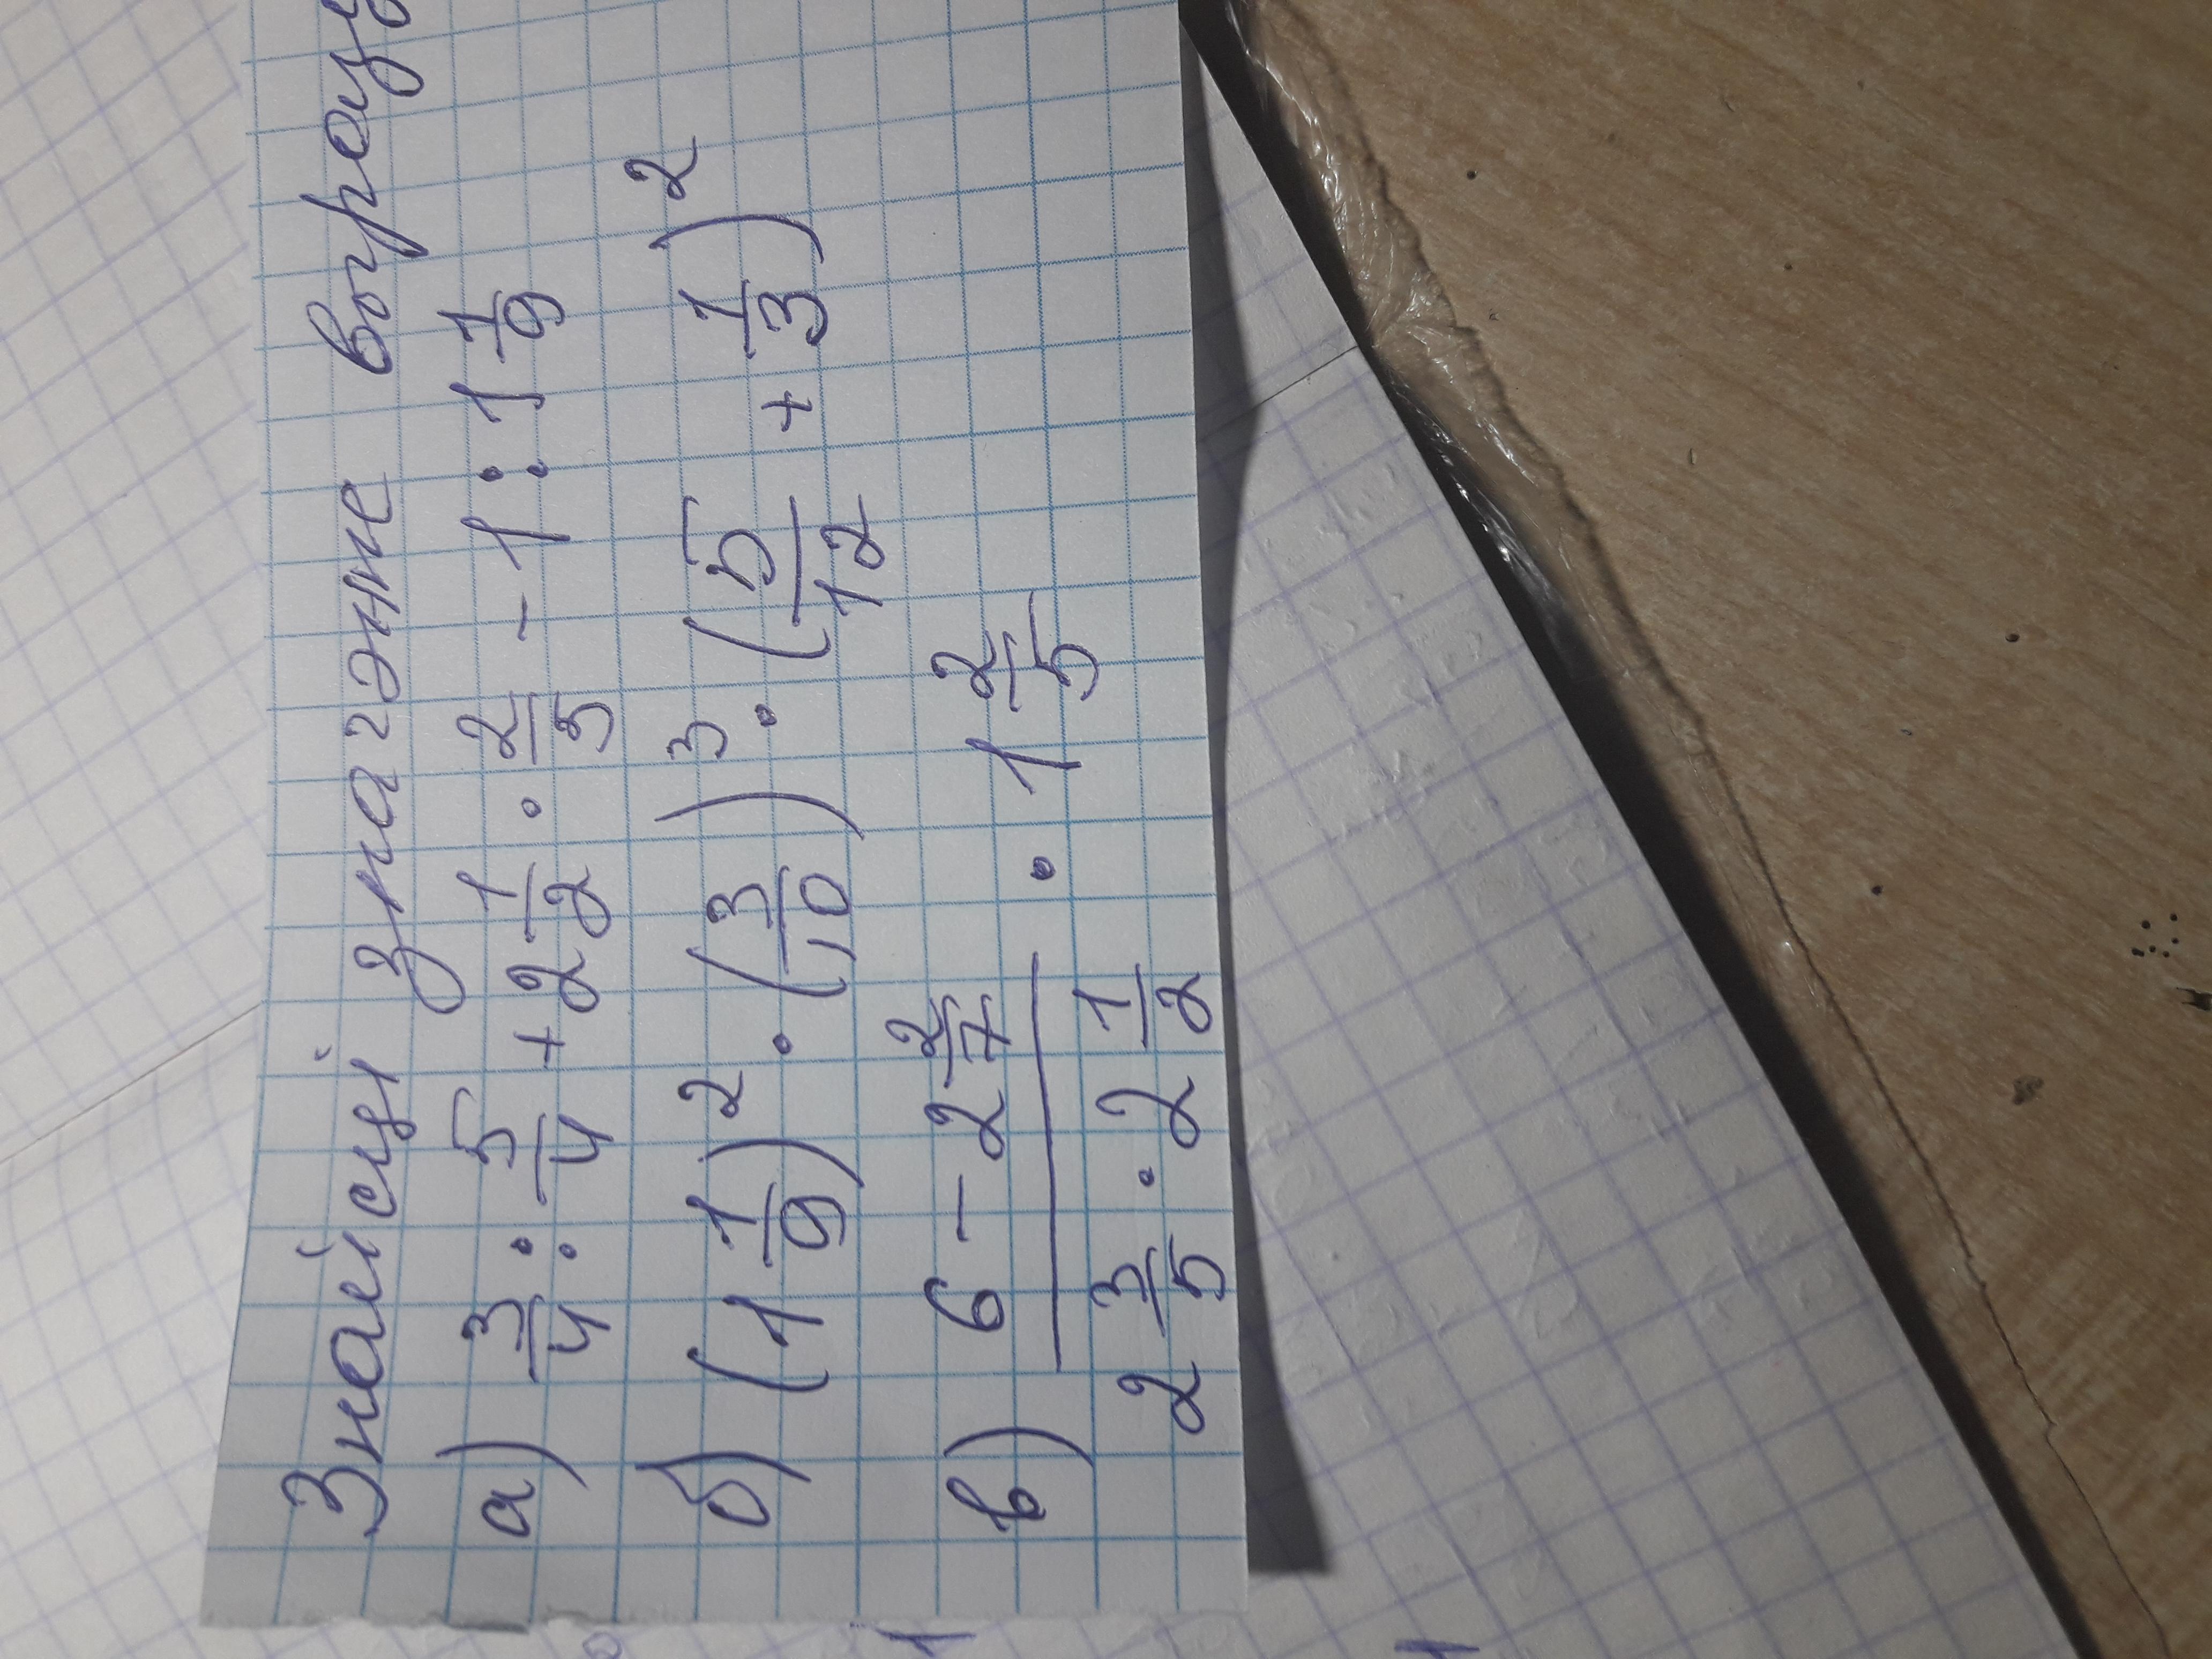 Знайсці значэнне выразу
а) 3/4 : 5/4 + 2 1/2 · 2/5 - 1 : 1 1/9
б) (1 1/9)² · (3/10)³ · (5/12 + 1/3)²
в) (6 - 2 2/7)/(2 3/5 · 2 1/2) · 1 2/5